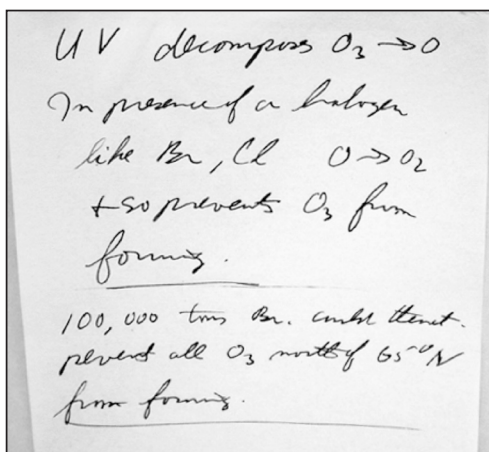 UV decomposes O₃ → O
In presence of a halogen
like Br, Cl O → O₂
+ so prevents O₃ from
forming.
100,000 tons Br. could theoret.
prevent all O₃ north of 65°N
from forming.